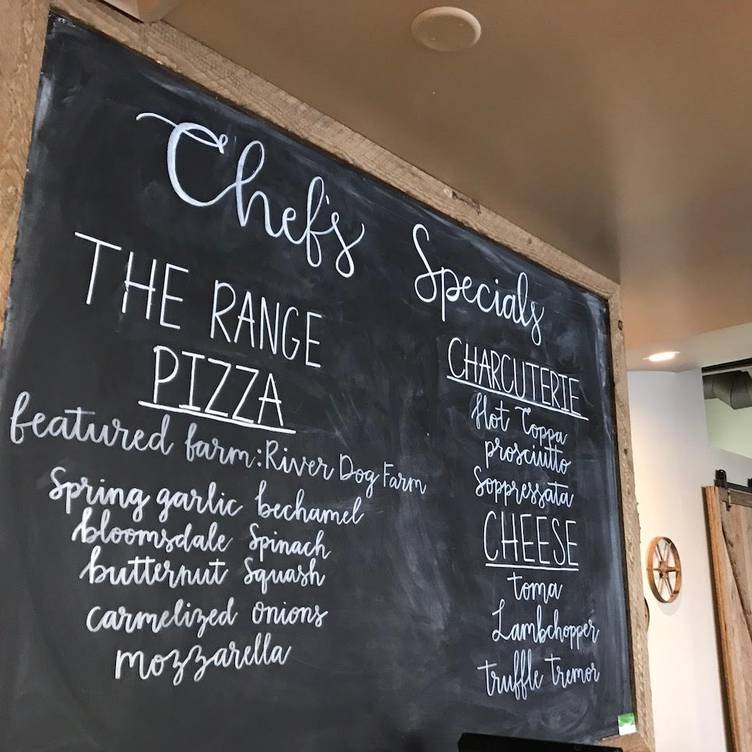 Chef's Specials
THE RANGE
PIZZA
featured farm: River Dog Farm
Spring garlic bechamel
bloomsdale Spinach
butternut Squash
carmelized onions
mozzarella
CHARCUTERIE
Hot Coppa
prosciutto
Soppressata
CHEESE
toma
Lambchopper
truffle tremor